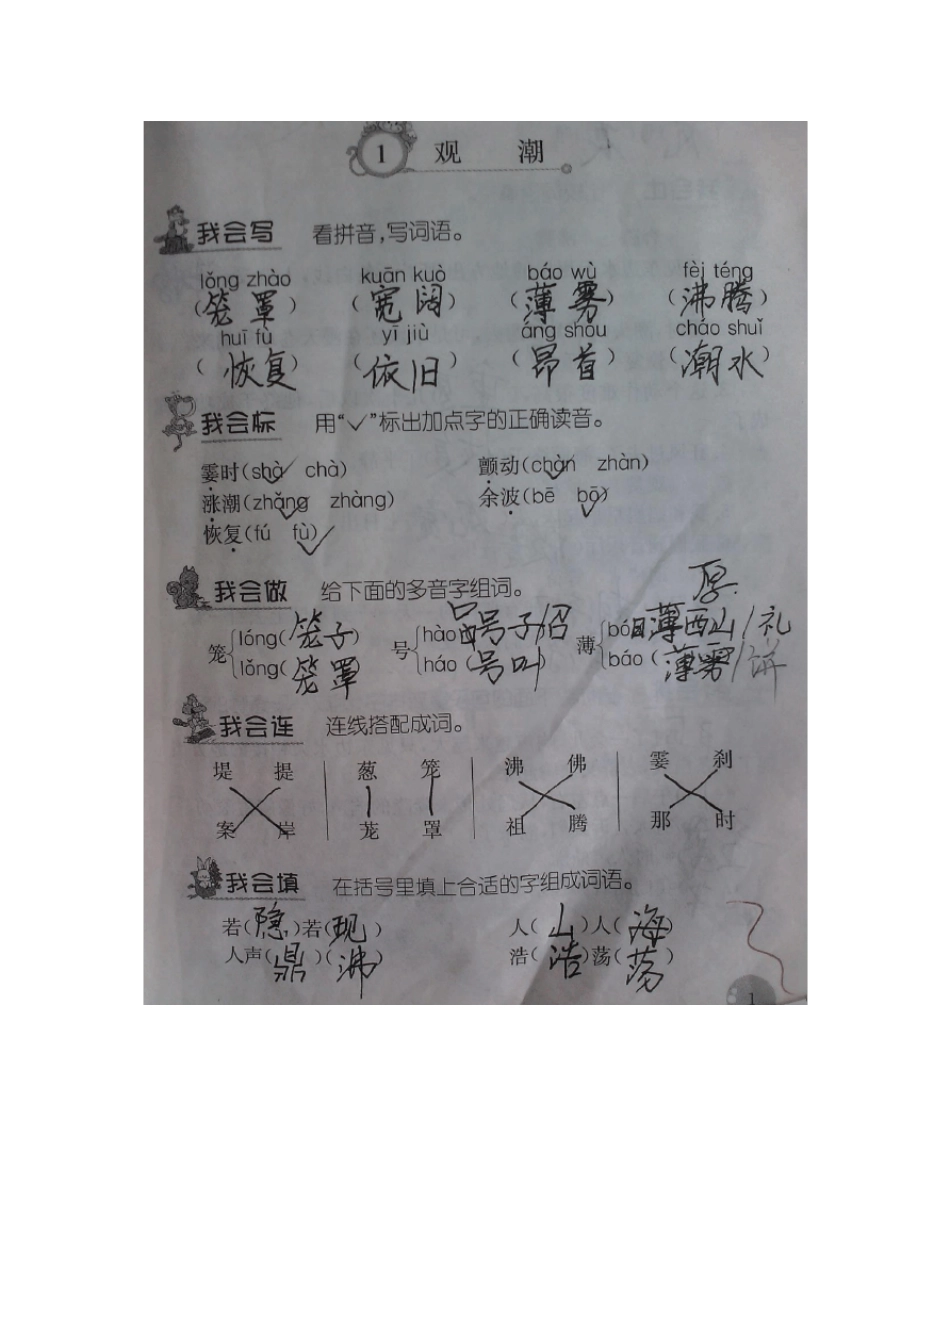 1 观 潮
我会写 看拼音,写词语。
lǒng zhào kuān kuò báo wù fèi téng
(笼罩) (宽阔) (薄雾) (沸腾)
huī fù yī jiù áng shǒu cháo shuǐ
(恢复) (依旧) (昂首) (潮水)
我会标 用“✓”标出加点字的正确读音。
霎时(shà✓ chà) 颤动(chàn✓ zhàn)
涨潮(zhǎng✓ zhàng) 余波(bē bō✓)
恢复(fú fù✓)
我会做 给下面的多音字组词。
厚
lóng(笼子) hào 号子 bó 日薄西山/礼
笼 号 薄
lǒng(笼罩) háo(号叫) báo(薄雾/饼
我会连 连线搭配成词。
堤 提 葱 笼 沸 佛 霎 刹
案 岸 茏 罩 祖 腾 那 时
我会填 在括号里填上合适的字组成词语。
若(隐)若(现) 人(山)人(海)
人声(鼎)(沸) 浩(浩)荡(荡)
1